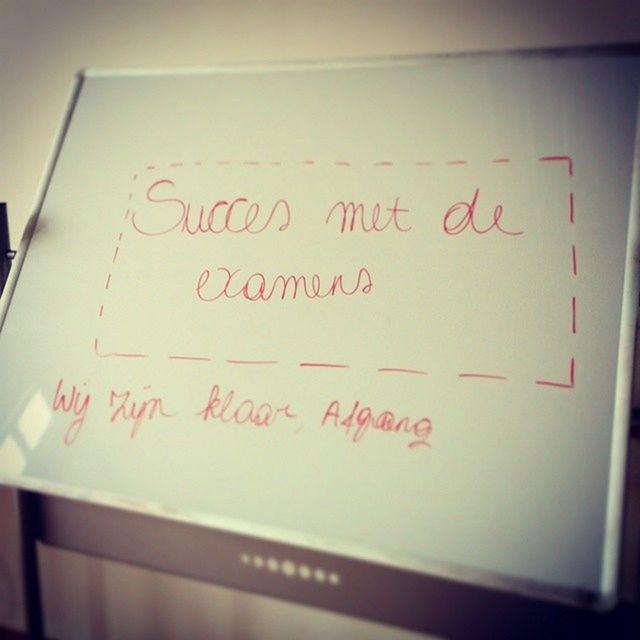 Succes met de
examens
Wij zijn klaar, Afgang